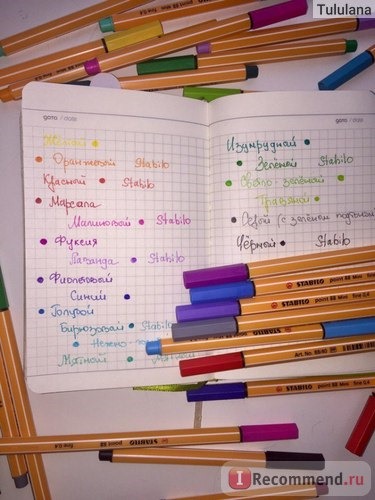 Tululana
дата / date
Жёлтый
Оранжевый Stabilo
Красный Stabilo
Марсала
Малиновый Stabilo
Фуксия
Лаванда Stabilo
Фиолетовый
Синий
Голубой
Бирюзовый Stabilo
Нежно-
Мятный
дата / date
Изумрудный
Зелёный Stabilo
Светло-зелёный
Травяной
Серый (с зелёным
Чёрный Stabilo
STABILO point 88 Mini fine 0,4
STABILO point 88 Mini
Art. No. 88/40
STABILO point 88 Mini fine 0,4
STABILO point 88 fine 0,4
point 88
I Recommend.ru